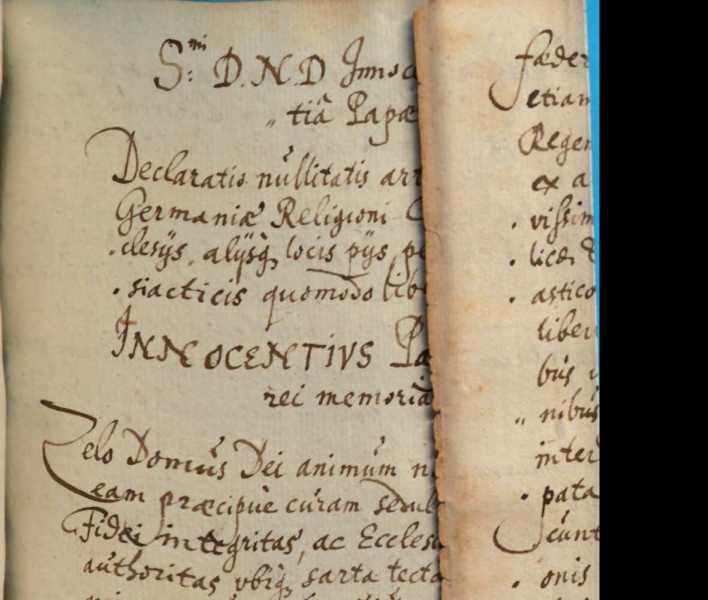 S.mi D.N.D Innoc
„tiâ Papæ
Declaratio nullitatis art
Germaniæ Religioni C
.clesijs, alijsq, locis pijs, pe
.siacticis quomodo lib
INNOCENTIVS Pa
rei memoria
Zelo Domus Dei animum n
eam præcipue curam sedul
Fidei integritas, ac Eccles
authoritas vbiq, sarta tecta
fæder
etiam
Regen
ex a
. vissim
. licæ,
. astico
liber
bus
„ nibus
inter
. pata
cunt
. onis